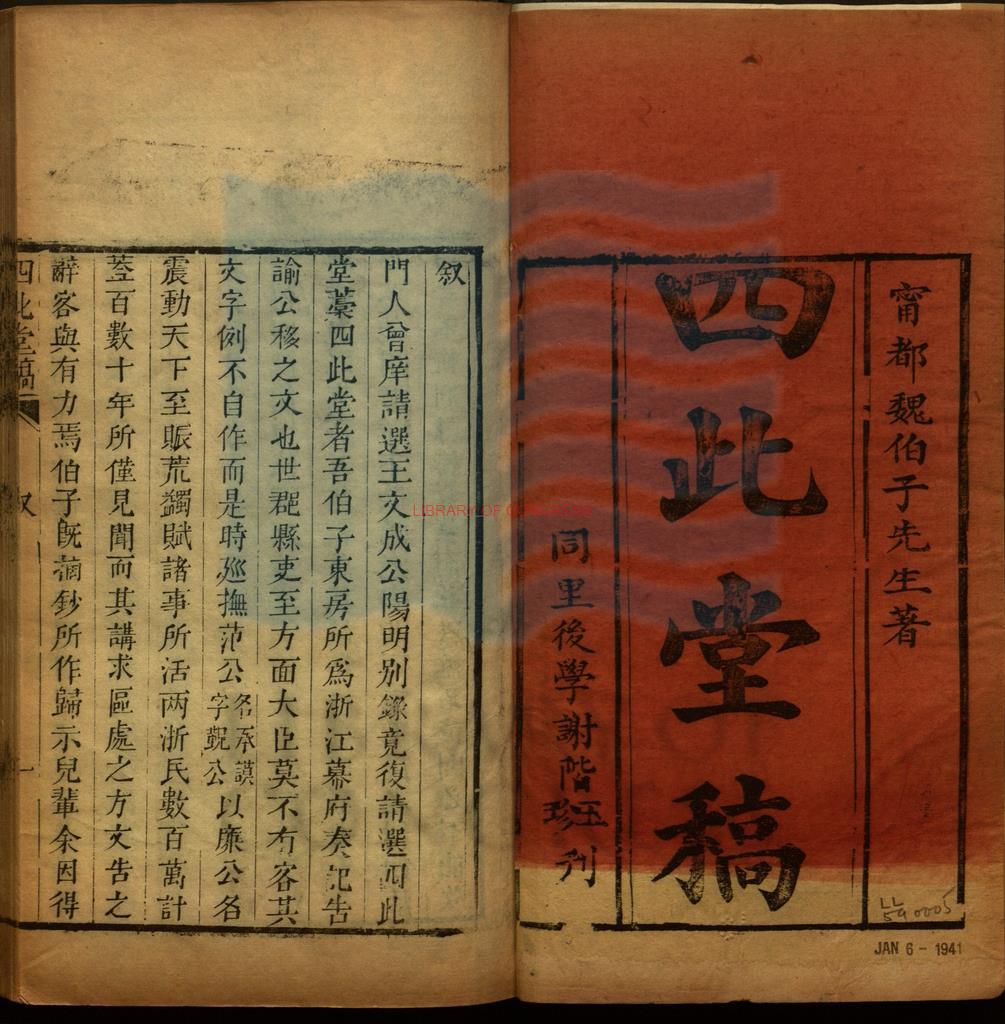 甯都魏伯子先生著
四此堂稿
同里後學謝階玉珍刋
LL
590005
JAN 6 - 1941
LIBRARY OF CONGRESS
叙
門人曾庠請選王文成公陽明别錄竟復請選四此
堂藁四此堂者吾伯子東房所爲浙江幕府奏記告
諭公移之文也世郡縣吏至方面大臣莫不有客其
文字例不自作而是時廵撫范公名承謨字覲公以廉公名
震動天下至賑荒蠲賦諸事所活两浙民數百萬計
葢百數十年所僅見聞而其講求區處之方文告之
辭客與有力焉伯子旣摘鈔所作歸示兒輩余因得
四此堂稿
叙
一